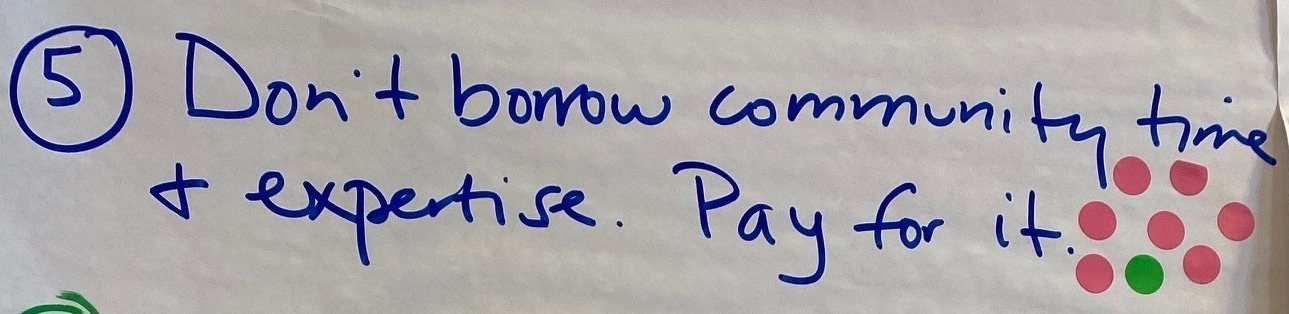 ⑤ Don't borrow community time
+ expertise. Pay for it.